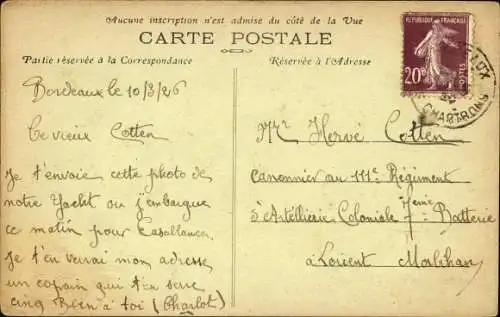 Aucune inscription n'est admise du côté de la Vue
CARTE POSTALE
Partie réservée à la Correspondance
Réservée à l'Adresse
REPUBLIQUE FRANÇAISE
20c
POSTES
CHARTRONS
Bordeaux le 10/3/26
Ce vieux Cotten
Je t'envoie cette photo de
notre Yacht ou j'embarque
ce matin pour Casablanca
Je t'enverai mon adresse
un copain qui t'en serre
cinq Bien à toi (Charlot)
Mr Hervé Cotten
Canonnier au 111e Régiment
d'Artillerie Coloniale 7eme Batterie
à Lorient Morbihan